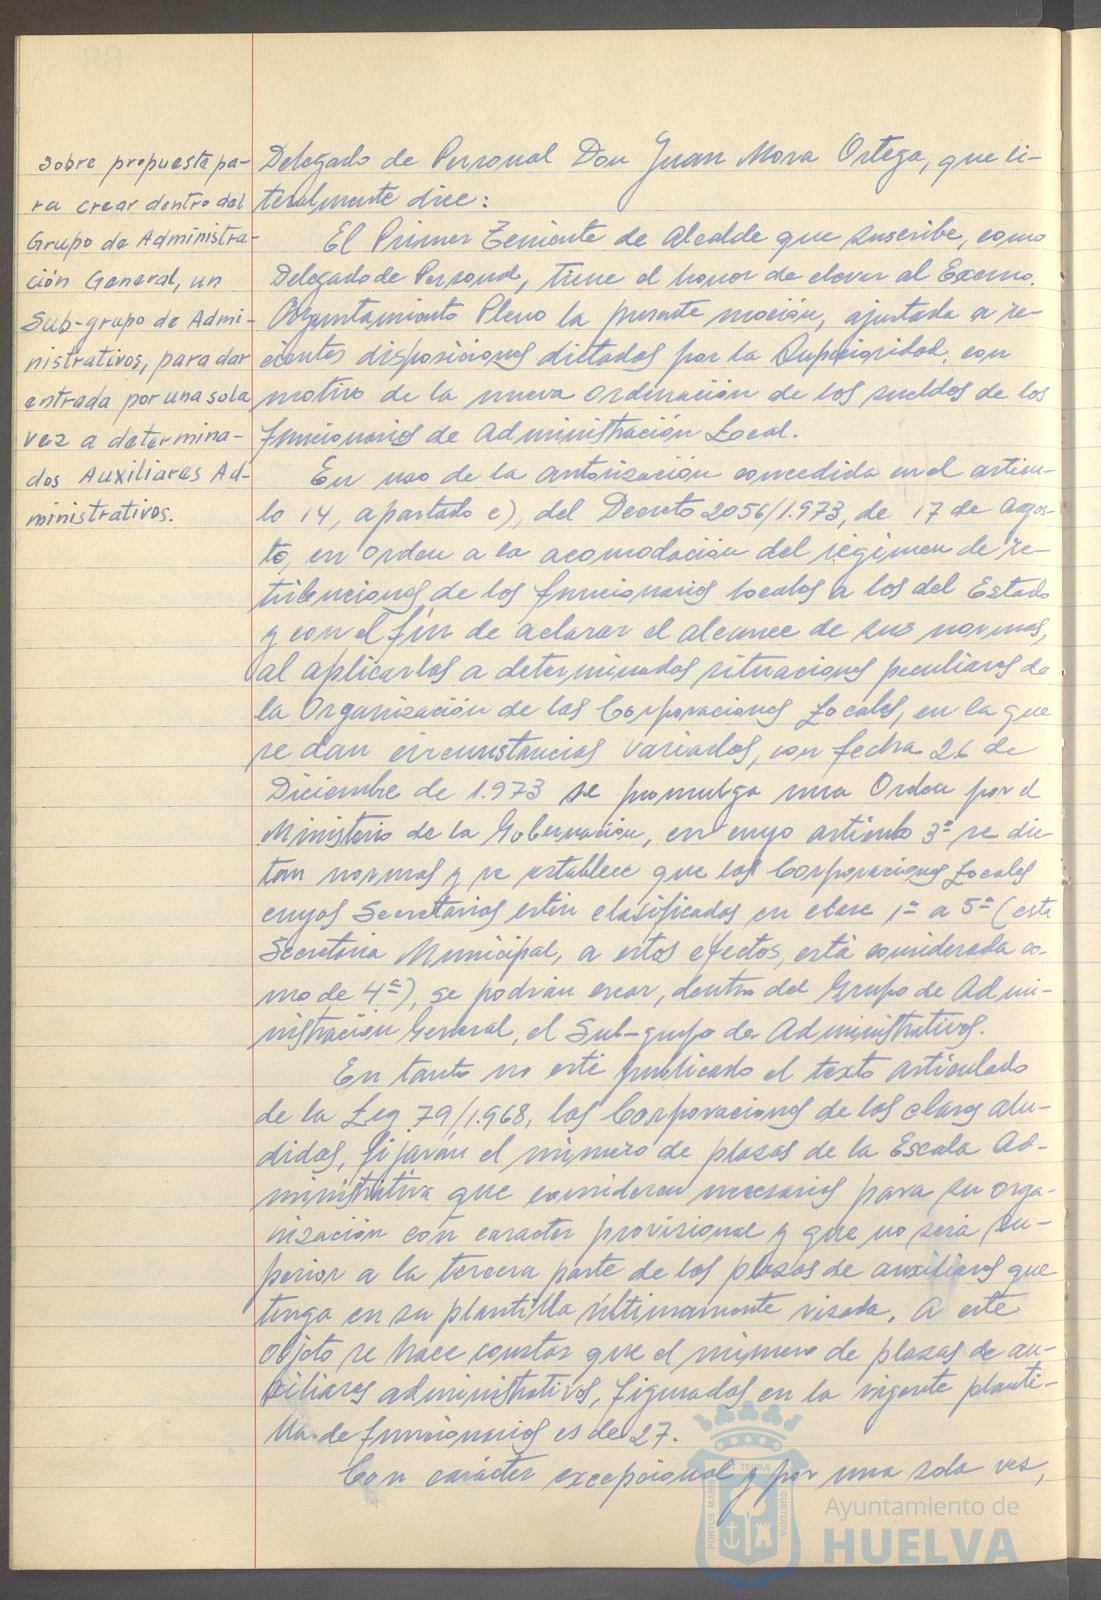 sobre propuesta pa-
ra crear dentro del
Grupo de Administra-
ción General, un
Sub-grupo de Admi-
nistrativos, para dar
entrada por una sola
vez a determina-
dos Auxiliares Ad-
ministrativos.
Delegado de Personal Don Juan Mora Ortega, que li-
teralmente dice:
El Primer Teniente de Alcalde que suscribe, como
Delegado de Personal, tiene el honor de elevar al Excmo.
Ayuntamiento Pleno la presente moción, ajustada a re-
cientes disposiciones dictadas por la Superioridad, con
motivo de la nueva ordenación de los sueldos de los
funcionarios de Administración Local.
En uso de la autorización concedida en el artícu-
lo 14, apartado c), del Decreto 2056/1.973, de 17 de agos-
to, en orden a la acomodación del régimen de re-
tribuciones de los funcionarios locales a los del Estado
y con el fin de aclarar el alcance de sus normas,
al aplicarlas a determinadas situaciones peculiares de
la Organización de las Corporaciones Locales, en la que
se dan circunstancias variadas, con fecha 26 de
Diciembre de 1.973 se promulga una Orden por el
Ministerio de la Gobernación, en cuyo artículo 3º se dic-
tan normas y se establece que las Corporaciones Locales
cuyos Secretarios estén clasificados en clase 1ª a 5ª (esta
Secretaría Municipal, a estos efectos, está considerada co-
mo de 4ª), se podrán crear, dentro del Grupo de Admi-
nistración General, el Sub-grupo de Administrativos.
En tanto no esté publicado el texto articulado
de la Ley 79/1.968, las Corporaciones de las clases alu-
didas, fijarán el número de plazas de la Escala Ad-
ministrativa que consideren necesarias para su orga-
nización con carácter provisional y que no será su-
perior a la tercera parte de las plazas de auxiliares que
tenga en su plantilla últimamente visada. A este
objeto se hace constar que el número de plazas de au-
xiliares administrativos, figuradas en la vigente planti-
lla de funcionarios es de 27.
Con carácter excepcional y por una sola vez,
PORTUS MARIS ET TERRAE CUSTODIA
Ayuntamiento de
HUELVA